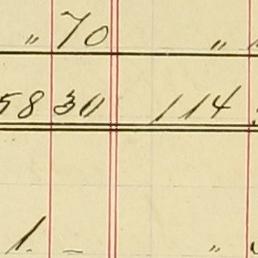 " 70 "
58 30 114
1. – "